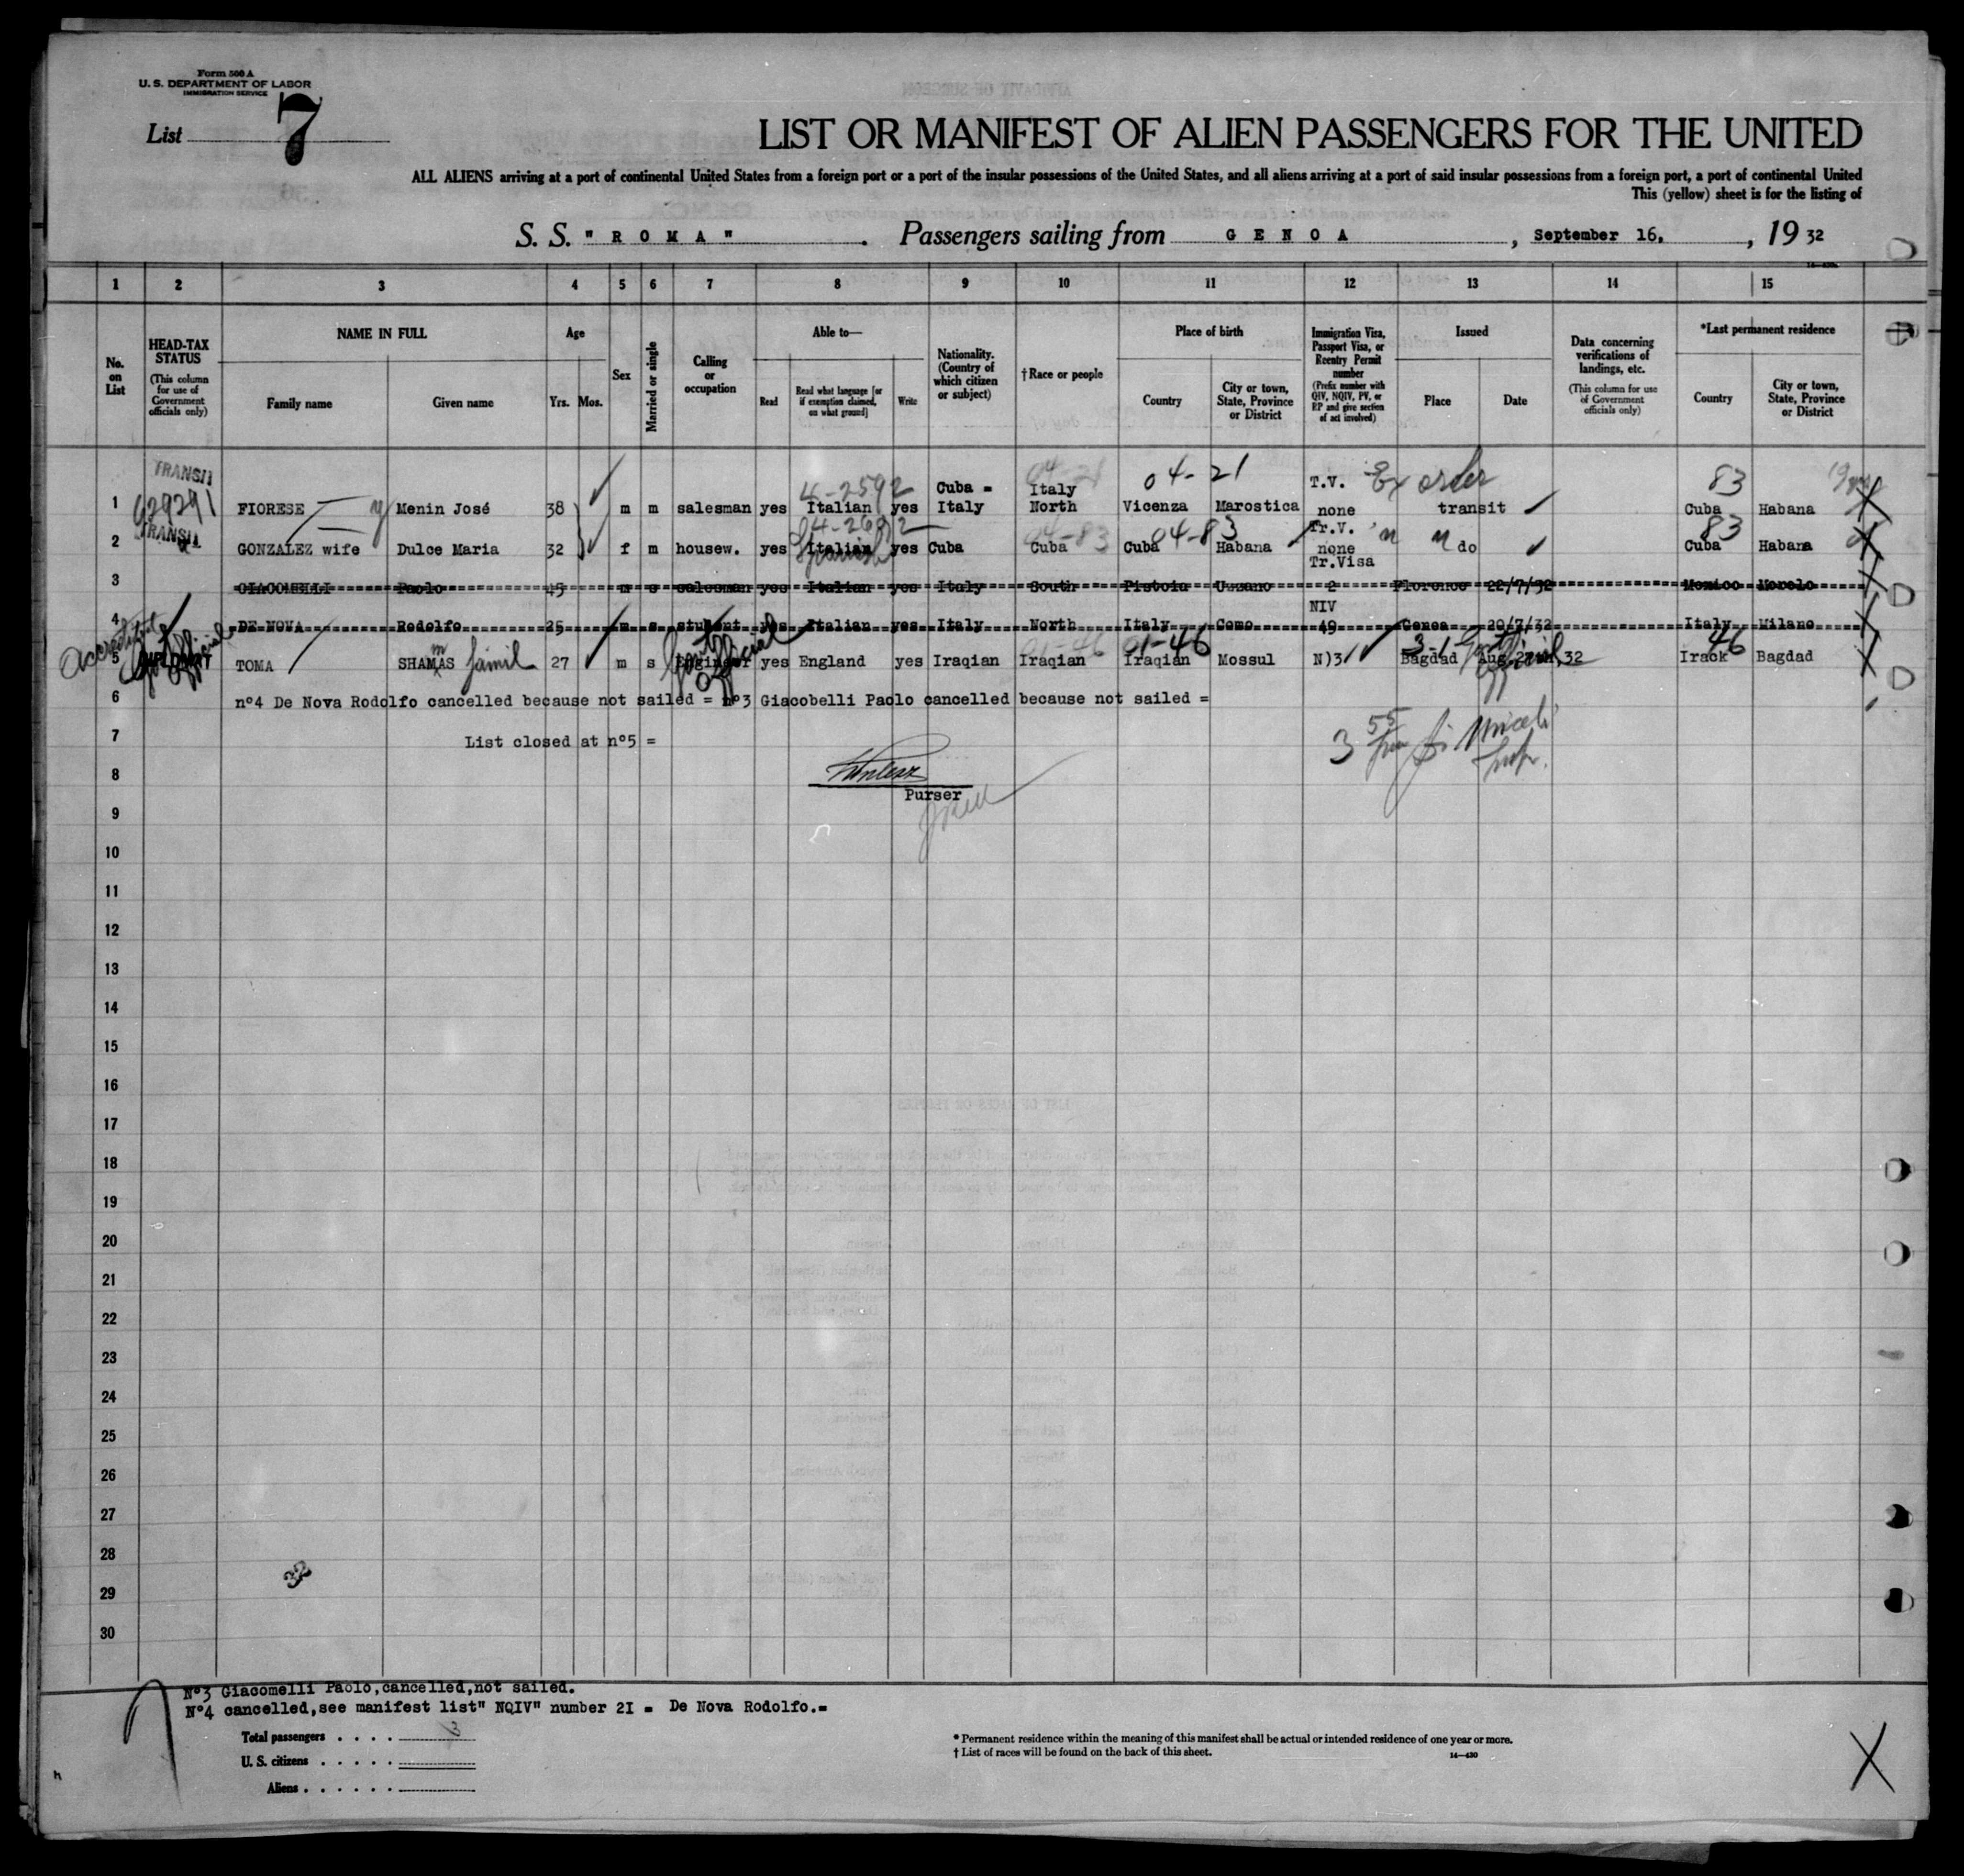 Form 500 A
U. S. DEPARTMENT OF LABOR
IMMIGRATION SERVICE
List 7
LIST OR MANIFEST OF ALIEN PASSENGERS FOR THE UNITED
ALL ALIENS arriving at a port of continental United States from a foreign port or a port of the insular possessions of the United States, and all aliens arriving at a port of said insular possessions from a foreign port, a port of continental United
This (yellow) sheet is for the listing of
S. S. "ROMA" . Passengers sailing from GENOA , September 16, , 19 32
1 2 3 4 5 6 7 8 9 10 11 12 13 14 15
No. on List
HEAD-TAX STATUS (This column for use of Government officials only)
NAME IN FULL
Family name
Given name
Age
Yrs. Mos.
Sex
Married or single
Calling or occupation
Able to—
Read
Read what language [or if exemption claimed, on what ground]
Write
Nationality. (Country of which citizen or subject)
†Race or people
Place of birth
Country
City or town, State, Province or District
Immigration Visa, Passport Visa, or Reentry Permit number (Prefix number with QIV, NQIV, PV, or RP and give section of act involved)
Issued
Place
Date
Data concerning verifications of landings, etc. (This column for use of Government officials only)
*Last permanent residence
Country
City or town, State, Province or District
TRANSIT 4-2592 Cuba = Italy 04-21 04-21 T.V. Ex order 83
1 629291 FIORESE y Menin José 38 m m salesman yes Italian yes Italy North Vicenza Marostica none transit Cuba Habana
TRANSIT 04-83 04-83 Tr.V. 83
2 GONZALEZ wife Dulce Maria 32 f m housew. yes Italian Spanish yes Cuba Cuba Cuba Habana none do Cuba Habana
Tr.Visa
3 GIACOMELLI Paolo 45 m s salesman yes Italian yes Italy South Pistoia Uzzano 2 Florence 22/7/32 Mexico Morelo
NIV
4 DE NOVA Rodolfo 25 m s student yes Italian yes Italy North Italy Como 49 Genoa 20/7/32 Italy Milano
Accredited Official DIPLOMAT Gov't Official 01-46 01-46 3-1 46
5 TOMA SHAMAS m Jamil 27 m s Engineer yes England yes Iraqian Iraqian Iraqian Mossul N)3 Bagdad Aug. 32 Irack Bagdad
6 nº4 De Nova Rodolfo cancelled because not sailed = nº3 Giacobelli Paolo cancelled because not sailed =
7 List closed at nº5 =
3 55
8
Purser
9
10
11
12
13
14
15
16
17
18
19
20
21
22
23
24
25
26
27
28
29
30
Nº3 Giacomelli Paolo,cancelled,not sailed.
Nº4 cancelled,see manifest list" NQIV" number 2I = De Nova Rodolfo.=
Total passengers . . . . 3
U. S. citizens . . . . .
Aliens . . . . . .
* Permanent residence within the meaning of this manifest shall be actual or intended residence of one year or more.
† List of races will be found on the back of this sheet.
14—430